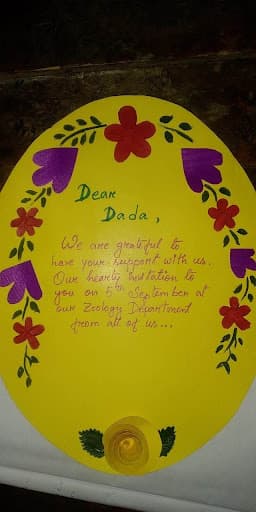 Dear
Dada,
We are grateful to
have your support with us.
Our hearty invitation to
you on 5th September at
our Zoology Department
from all of us...